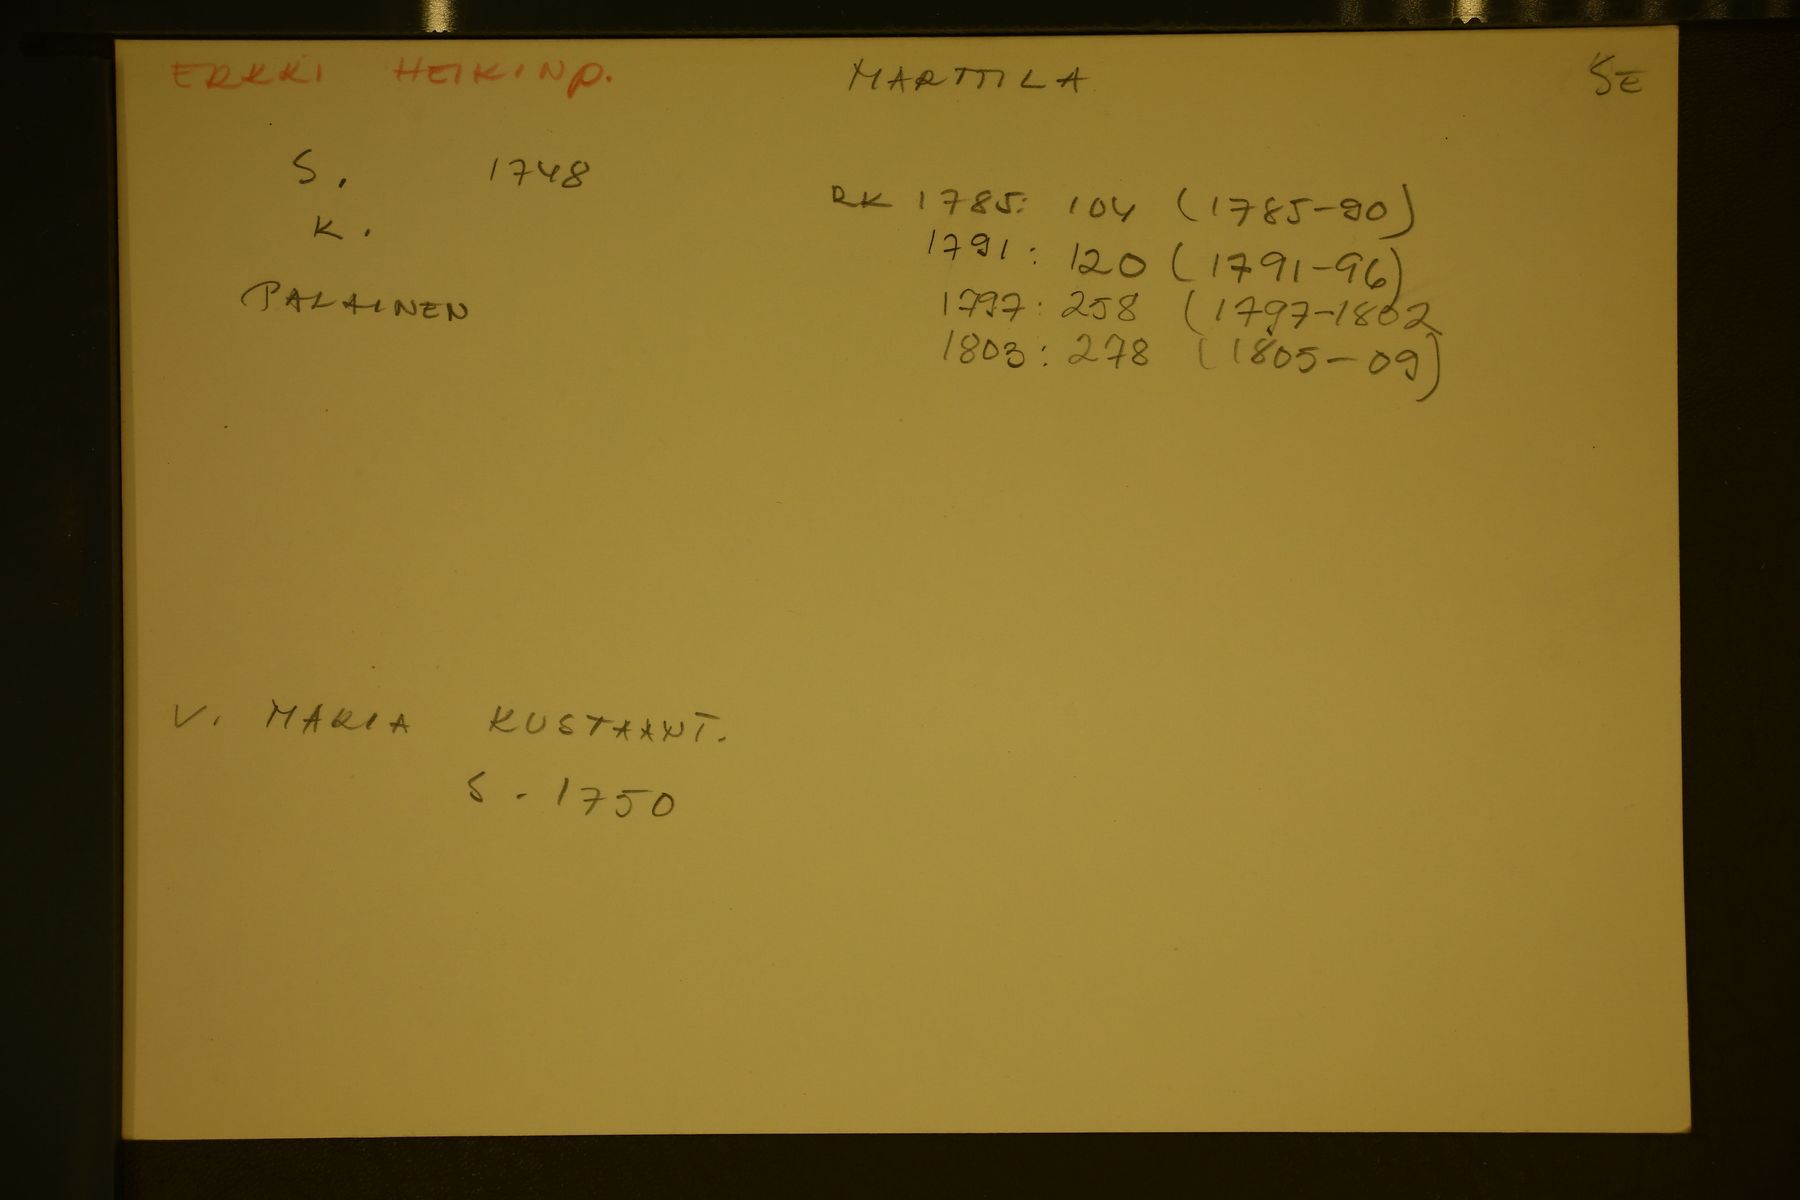 ERKKI HEIKINP. MARTTILA SE
S. 1748
K.
PALAINEN
RK 1785: 104 (1785-90)
1791: 120 (1791-96)
1797: 258 (1797-1802
1803: 278 (1805-09)
V. MARIA KUSTAANT.
S. 1750